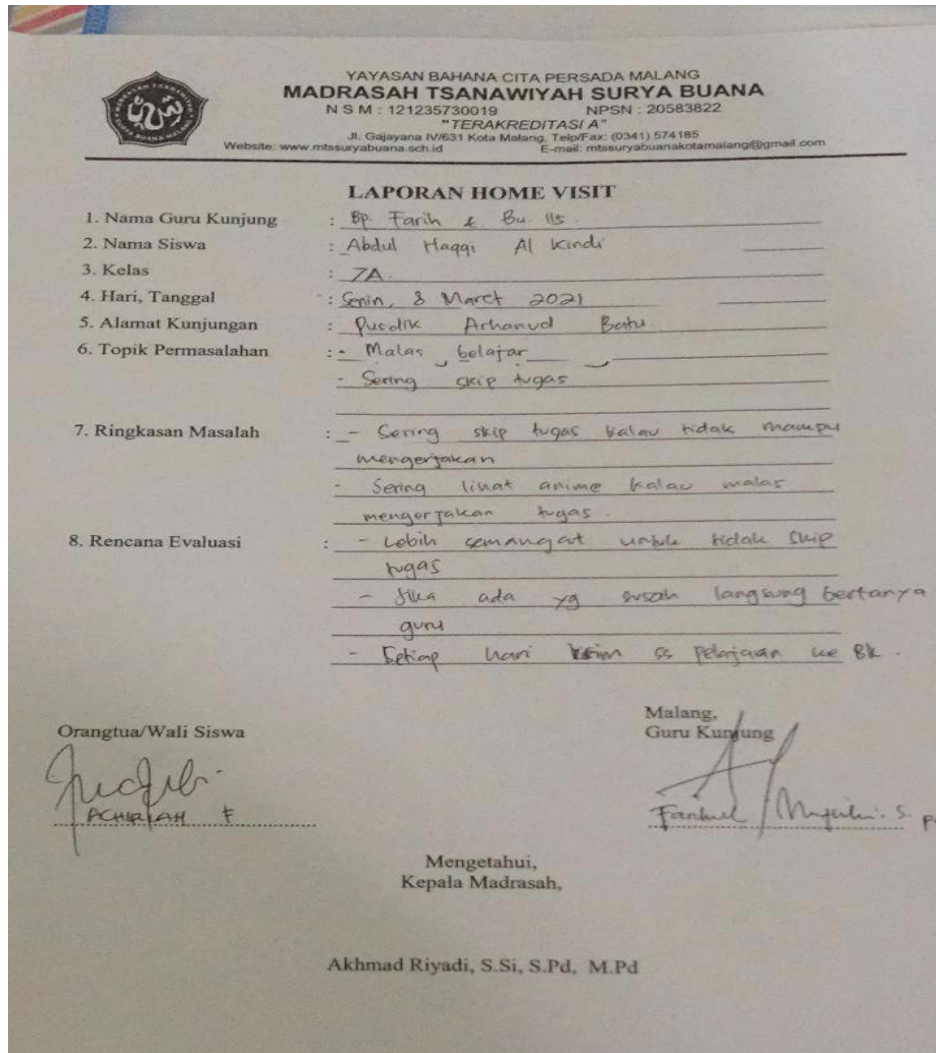 YAYASAN BAHANA CITA PERSADA MALANG
MADRASAH TSANAWIYAH SURYA BUANA
N S M : 121235730019 NPSN : 20583822
"TERAKREDITASI A"
Jl. Gajayana IV/631 Kota Malang, Telp/Fax: (0341) 574185
Website: www.mtssuryabuana.sch.id E-mail: mtssuryabuanakotamalang@gmail.com
LAPORAN HOME VISIT
1. Nama Guru Kunjung : Bp. Farih & Bu. Iis.
2. Nama Siswa : Abdul Haqqi Al Kindi
3. Kelas : 7A.
4. Hari, Tanggal : Senin, 8 Maret 2021
5. Alamat Kunjungan : Pusdik Arhanud Batu
6. Topik Permasalahan : - Malas belajar
- Sering skip tugas
7. Ringkasan Masalah : - Sering skip tugas kalau tidak mampu
mengerjakan
- Sering lihat anime kalau malas
mengerjakan tugas.
8. Rencana Evaluasi : - Lebih semangat untuk tidak skip
tugas
- Jika ada yg susah langsung bertanya
guru
- Setiap hari kirim ss pelajaran ke BK.
Malang,
Orangtua/Wali Siswa Guru Kunjung
Mengetahui,
Kepala Madrasah,
Akhmad Riyadi, S.Si, S.Pd, M.Pd